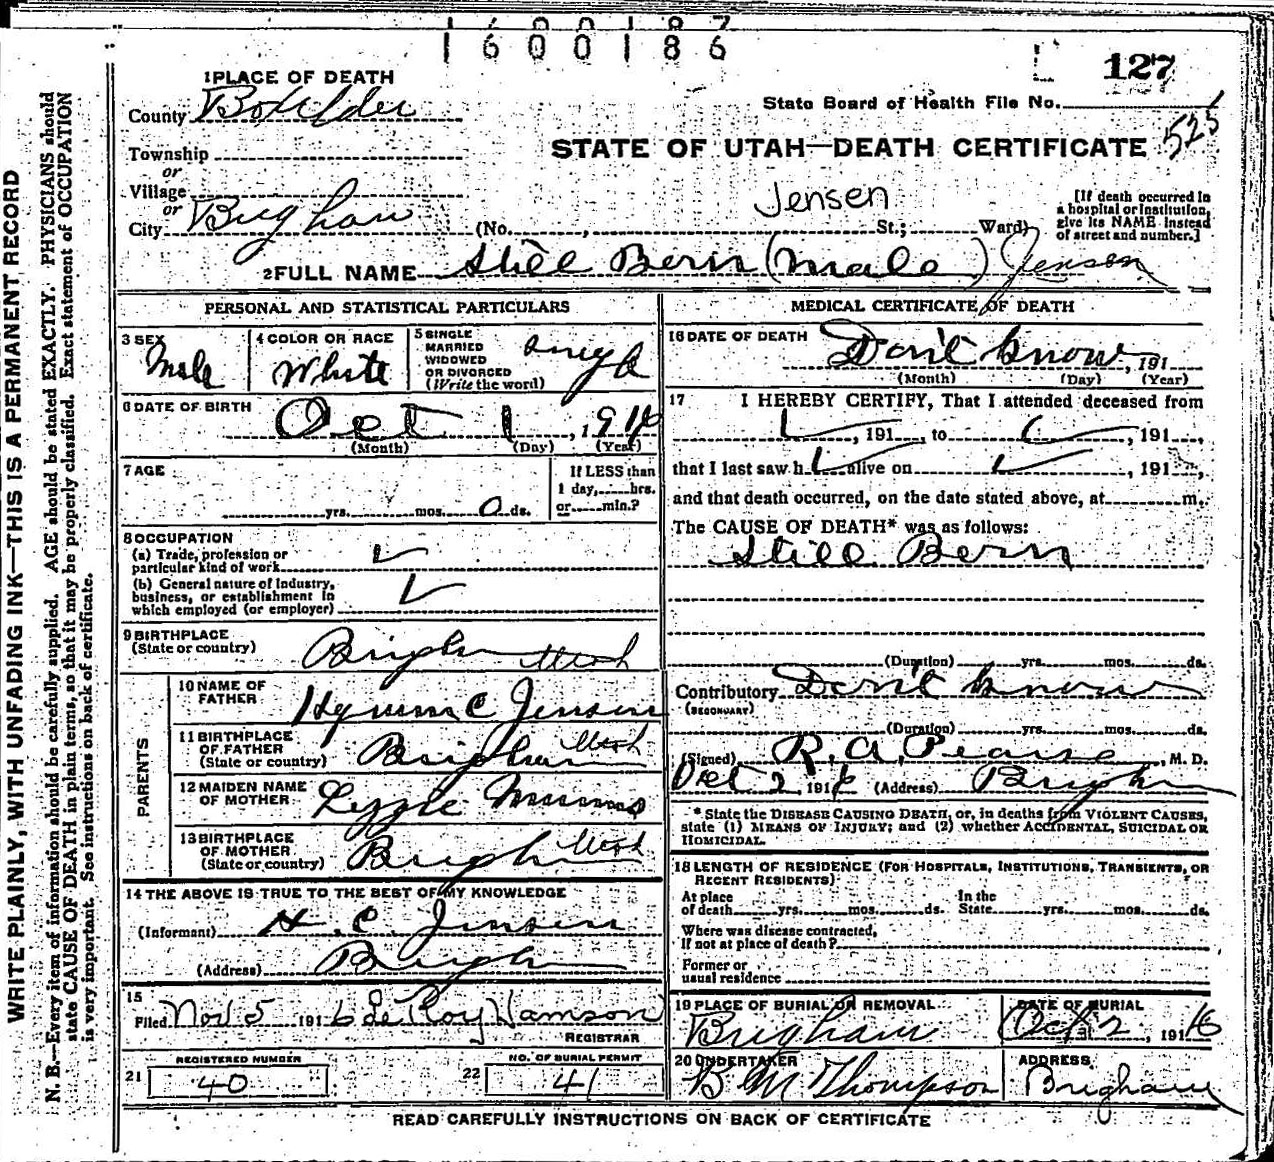 1600187
1600186
127
1 PLACE OF DEATH
County Box Elder
State Board of Health File No.
525
Township
or
STATE OF UTAH—DEATH CERTIFICATE
Village
or
City Brigham
Jensen
(No. , St.; Ward)
[If death occurred in a hospital or institution, give its NAME instead of street and number.]
2 FULL NAME Still Bern (Male) Jensen
PERSONAL AND STATISTICAL PARTICULARS
3 SEX
Male
4 COLOR OR RACE
White
5 SINGLE MARRIED WIDOWED OR DIVORCED (Write the word)
6 DATE OF BIRTH
Oct 1, 1916
(Month) (Day) (Year)
7 AGE
yrs. mos. 0 ds.
If LESS than 1 day, hrs. or min.?
8 OCCUPATION
(a) Trade, profession or particular kind of work
(b) General nature of industry, business, or establishment in which employed (or employer)
9 BIRTHPLACE
(State or country) Brigham Utah
PARENTS
10 NAME OF FATHER Hyrum C Jensen
11 BIRTHPLACE OF FATHER
(State or country) Brigham Utah
12 MAIDEN NAME OF MOTHER
13 BIRTHPLACE OF MOTHER
(State or country) Brigham Utah
14 THE ABOVE IS TRUE TO THE BEST OF MY KNOWLEDGE
(Informant) H. C. Jensen
(Address) Brigham
15
Filed Nov 5 1916
REGISTRAR
REGISTERED NUMBER
21 40
NO. OF BURIAL PERMIT
22 41
MEDICAL CERTIFICATE OF DEATH
16 DATE OF DEATH
Don't know, 191
(Month) (Day) (Year)
17 I HEREBY CERTIFY, That I attended deceased from
, 191 , to , 191 ,
that I last saw h alive on , 191 ,
and that death occurred, on the date stated above, at m.
The CAUSE OF DEATH* was as follows:
Still Bern
(Duration) yrs. mos. ds.
Contributory Don't know
(SECONDARY)
(Duration) yrs. mos. ds.
(Signed) R. A. Pearse, M. D.
Oct 2 1916 (Address) Brigham
* State the DISEASE CAUSING DEATH, or, in deaths from VIOLENT CAUSES,
state (1) MEANS OF INJURY; and (2) whether ACCIDENTAL, SUICIDAL OR
HOMICIDAL.
18 LENGTH OF RESIDENCE (FOR HOSPITALS, INSTITUTIONS, TRANSIENTS, OR
RECENT RESIDENTS)
At place of death yrs. mos. ds. In the State yrs. mos. ds.
Where was disease contracted,
If not at place of death?
Former or
usual residence
19 PLACE OF BURIAL OR REMOVAL
Brigham
DATE OF BURIAL
Oct 2 1916
20 UNDERTAKER
B M Thompson
ADDRESS
Brigham
READ CAREFULLY INSTRUCTIONS ON BACK OF CERTIFICATE
WRITE PLAINLY, WITH UNFADING INK—THIS IS A PERMANENT RECORD
N. B.—Every item of information should be carefully supplied. AGE should be stated EXACTLY. PHYSICIANS should
state CAUSE OF DEATH in plain terms, so that it may be properly classified. Exact statement of OCCUPATION
is very important. See instructions on back of certificate.